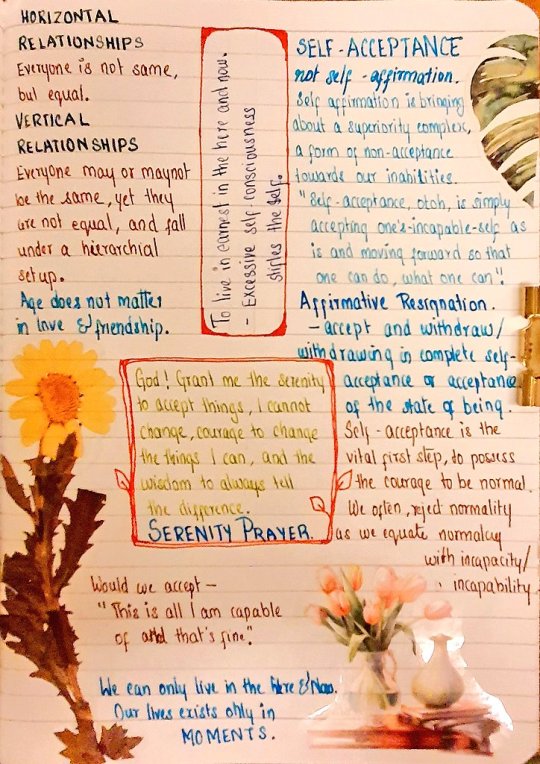 HORIZONTAL
RELATIONSHIPS
Everyone is not same,
but equal.
VERTICAL
RELATIONSHIPS
Everyone may or maynot
be the same, yet they
are not equal, and fall
under a hierarchial
set up.
Age does not matter
in love & friendship.
To live in earnest in the here and now.
- Excessive self consciousness
stifles the self.
SELF-ACCEPTANCE
not self-affirmation.
Self affirmation is bringing
about a superiority complex,
a form of non-acceptance
towards our inabilities.
"Self-acceptance, otoh, is simply
accepting one's-incapable-self as
is and moving forward so that
one can do, what one can".
Affirmative Resignation.
- accept and withdraw/
withdrawing in complete self-
acceptance or acceptance
of the state of being.
Self-acceptance is the
vital first step, to possess
the courage to be normal.
We often, reject normality
as we equate normalcy
with incapacity/
incapability.
God! Grant me the serenity
to accept things, I cannot
change, courage to change
the things I can, and the
wisdom to always tell
the difference.
SERENITY PRAYER.
Would we accept -
"This is all I am capable
of and that's fine".
We can only live in the Here & Now.
Our lives exists only in
MOMENTS.